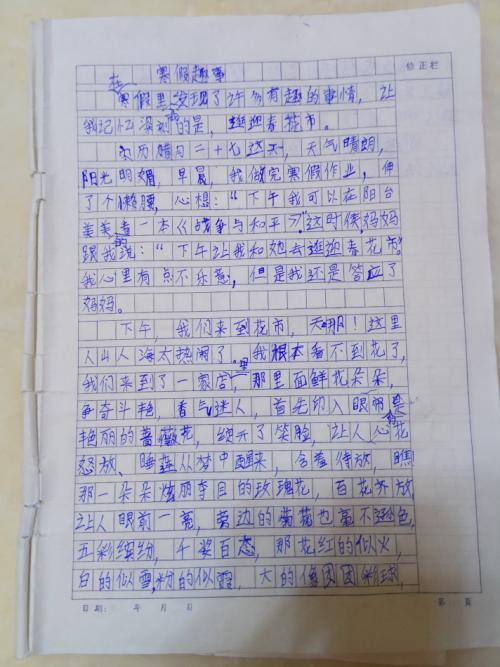 修正栏
寒假趣事
在寒假里发现了许多有趣的事情，让
我记忆深刻的是，逛迎春花市。
农历腊月二十七这天，天气晴朗，
阳光明媚，早晨，我做完寒假作业，伸
了个懒腰，心想：“下午我可以在阳台
美美的看一本《战争与和平》”。这时候，妈妈
跟我说：“下午让我和她去逛迎春花市。”
我心里有点不乐意，但是我还是答应了
妈妈。
下午，我们来到花市，天哪！这里
人山人海太热闹了，我根本看不到花了，
我们来到了一家店，那里面鲜花朵朵，
争奇斗艳，香气迷人，首先印入眼帘是
艳丽的蔷薇花，绽开了笑脸，让人心花
怒放、睡莲从梦中醒来，含着待放，瞧
那一朵朵炫丽夺目的玫瑰花，百花齐放
让人眼前一亮，旁边的菊花也毫不逊色，
五彩缤纷，千姿百态，那花红的似火，
白的似雪，粉的似霞，大的像团团彩球，
日期： 年 月 日 第 页